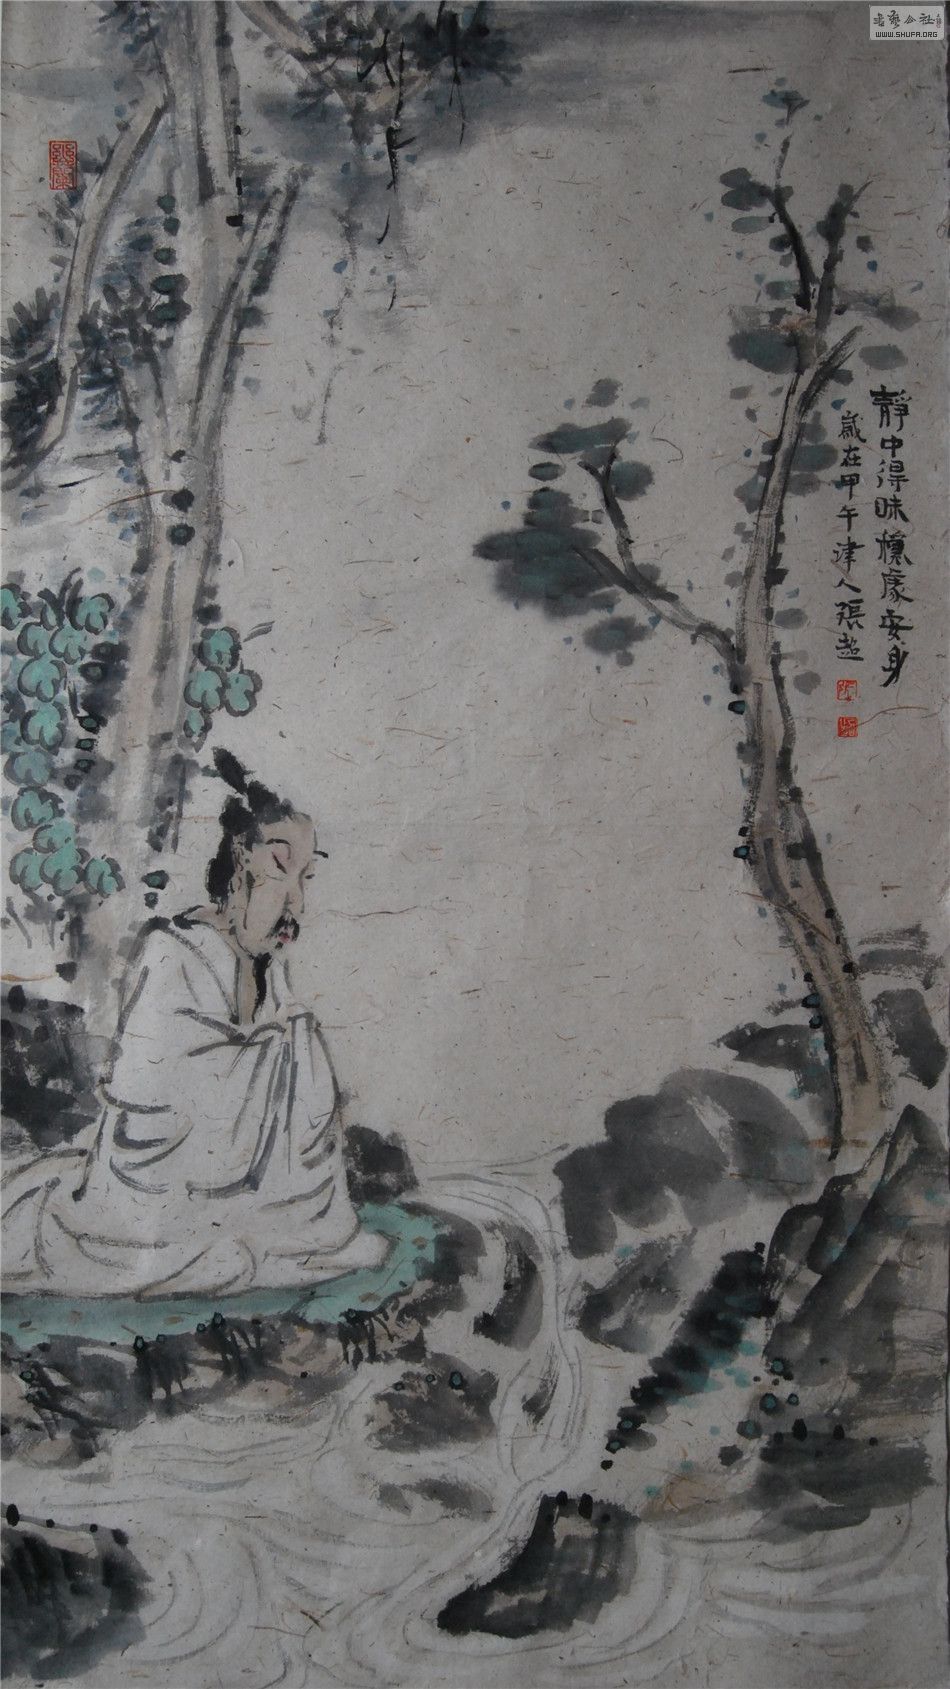 靜中得味穩處安身
歲在甲午津人張超
書藝公社
WWW.SHUFA.ORG